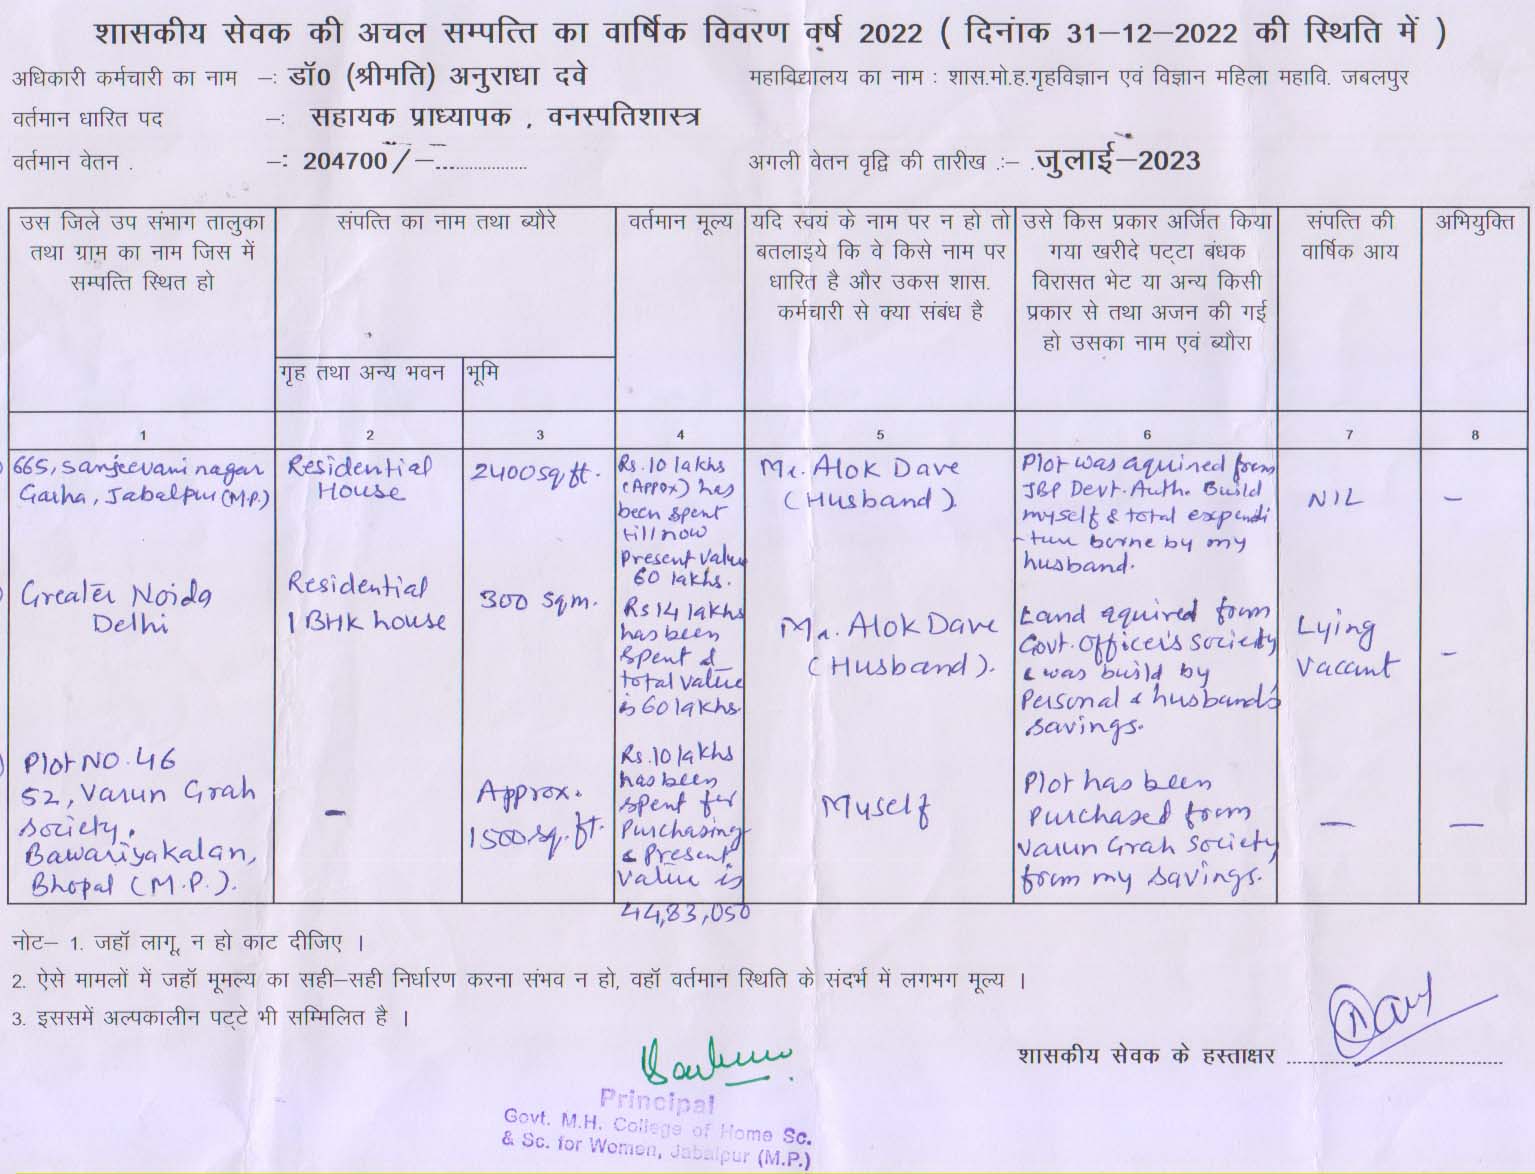 शासकीय सेवक की अचल सम्पत्ति का वार्षिक विवरण वर्ष 2022 ( दिनांक 31–12–2022 की स्थिति में )
अधिकारी कर्मचारी का नाम –: डॉ0 (श्रीमति) अनुराधा दवे
महाविद्यालय का नाम : शास.मो.ह.गृहविज्ञान एवं विज्ञान महिला महावि. जबलपुर
वर्तमान धारित पद –: सहायक प्राध्यापक , वनस्पतिशास्त्र
वर्तमान वेतन . –: 204700/–..................
अगली वेतन वृद्वि की तारीख :– .जुलाई–2023
उस जिले उप संभाग तालुका
तथा ग्राम का नाम जिस में
सम्पत्ति स्थित हो
संपत्ति का नाम तथा ब्यौरे
गृह तथा अन्य भवन
भूमि
वर्तमान मूल्य
यदि स्वयं के नाम पर न हो तो
बतलाइये कि वे किसे नाम पर
धारित है और उकस शास.
कर्मचारी से क्या संबंध है
उसे किस प्रकार अर्जित किया
गया खरीदे पट्टा बंधक
विरासत भेट या अन्य किसी
प्रकार से तथा अजन की गई
हो उसका नाम एवं ब्यौरा
संपत्ति की
वार्षिक आय
अभियुक्ति
1 2 3 4 5 6 7 8
665, Sanjeevani nagar
Garha, Jabalpur (M.P.)
Residential
House
2400 sq ft.
Rs. 10 lakhs
(Appox) has
been spent
till now
Present Value
60 lakhs.
Mr. Alok Dave
(Husband).
Plot was aquired from
JBP Devt. Auth. Build
myself & total expendi
-ture borne by my
husband.
NIL
–
Greater Noida
Delhi
Residential
1 BHK house
300 sqm.
Rs 14 lakhs
has been
spent &
total value
is 60 lakhs.
Mr. Alok Dave
(Husband).
Land aquired from
Govt. Officer's society
& was build by
Personal & husband's
savings.
Lying
vacant
–
Plot NO. 46
52, Varun Grah
Society,
Bawariyakalan,
Bhopal (M.P.).
–
Approx.
1500 sq. ft.
Rs. 10 lakhs
has been
spent for
purchasing
& present
value is
44,83,050
Myself
Plot has been
purchased from
Varun Grah Society
from my savings.
–
–
नोट– 1. जहॉ लागू, न हो काट दीजिए ।
2. ऐसे मामलों में जहॉ मूमल्य का सही–सही निर्धारण करना संभव न हो, वहॉ वर्तमान स्थिति के संदर्भ में लगभग मूल्य ।
3. इससमें अल्पकालीन पट्टे भी सम्मिलित है ।
शासकीय सेवक के हस्ताक्षर ..............................
Principal
Govt. M.H. College of Home Sc.
& Sc. for Women, Jabalpur (M.P.)